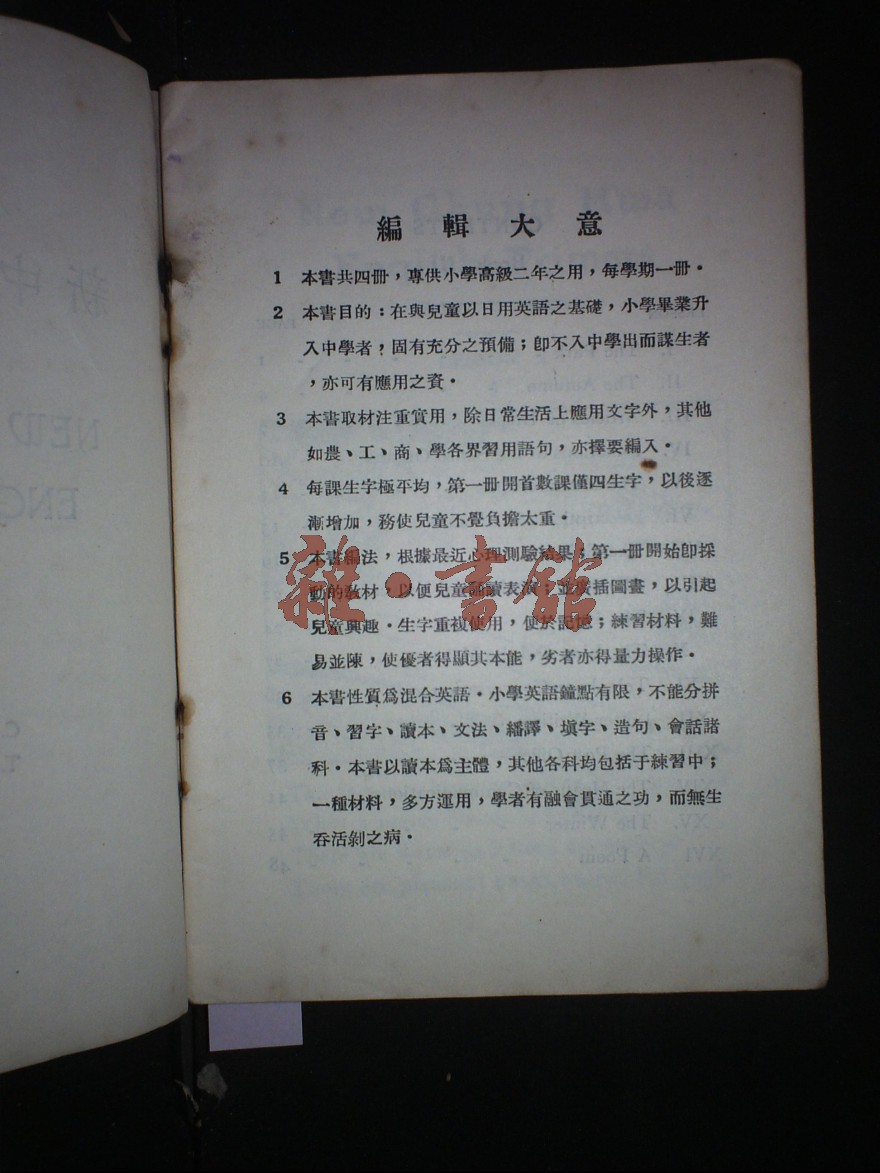 編輯大意
1 本書共四冊，專供小學高級二年之用，每學期一冊・
2 本書目的：在與兒童以日用英語之基礎，小學畢業升
入中學者，固有充分之預備；卽不入中學出而謀生者
，亦可有應用之資・
3 本書取材注重實用，除日常生活上應用文字外，其他
如農、工、商、學各界習用語句，亦擇要編入・
4 每課生字極平均，第一冊開首數課僅四生字，以後逐
漸增加，務使兒童不覺負擔太重・
5 本書編法，根據最近心理測驗結果；第一冊開始卽採
動的敎材，以便兒童誦讀表演；並廣插圖畫，以引起
兒童興趣・生字重複使用，便於記憶；練習材料，難
易並陳，使優者得顯其本能，劣者亦得量力操作・
6 本書性質爲混合英語・小學英語鐘點有限，不能分拼
音、習字、讀本、文法、繙譯、塡字、造句、會話諸
科・本書以讀本爲主體，其他各科均包括于練習中；
一種材料，多方運用，學者有融會貫通之功，而無生
吞活剝之病・
雜・書館
新中
NEW
ENG
C.
T.
II. The Autumn
XV. The Wind
XVI A Poem
48